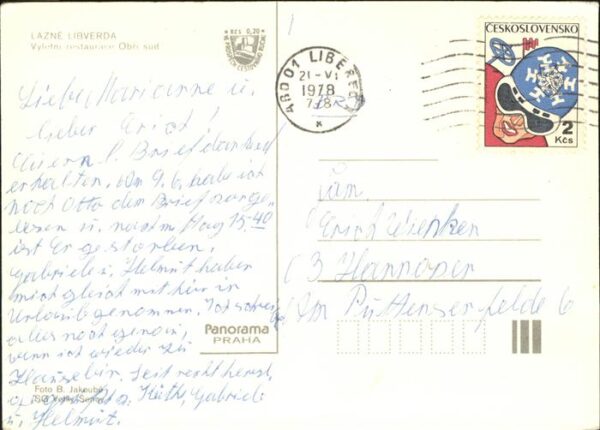 LAZNĚ LIBVERDA
Výletní restaurace Obří sud
Kčs 0,20
460 01 LIBEREC 1
21-VI
1978
7-8
ČESKOSLOVENSKO
2
Kčs
Liebe Marianne u.
lieber Erich!
Euern l. Brief dankend
erhalten. Am 9.6. habe ich
noch Otto den Brief vorge-
lesen u. nachm 15 40
ist Er gestorben.
Gabriele u. Helmut haben
mich gleich mit hier in
Urlaub genommen. Ich schreibe
alles noch genau,
wenn ich wieder zu
Hause bin. Seit recht herzl.
gegrüßt Ruth, Gabriele
u. Helmut.
Fam.
Erich Wienken
3 Hannover
Am Püttenserfelde 6
Panorama
PRAHA
Foto B. Jakoubě